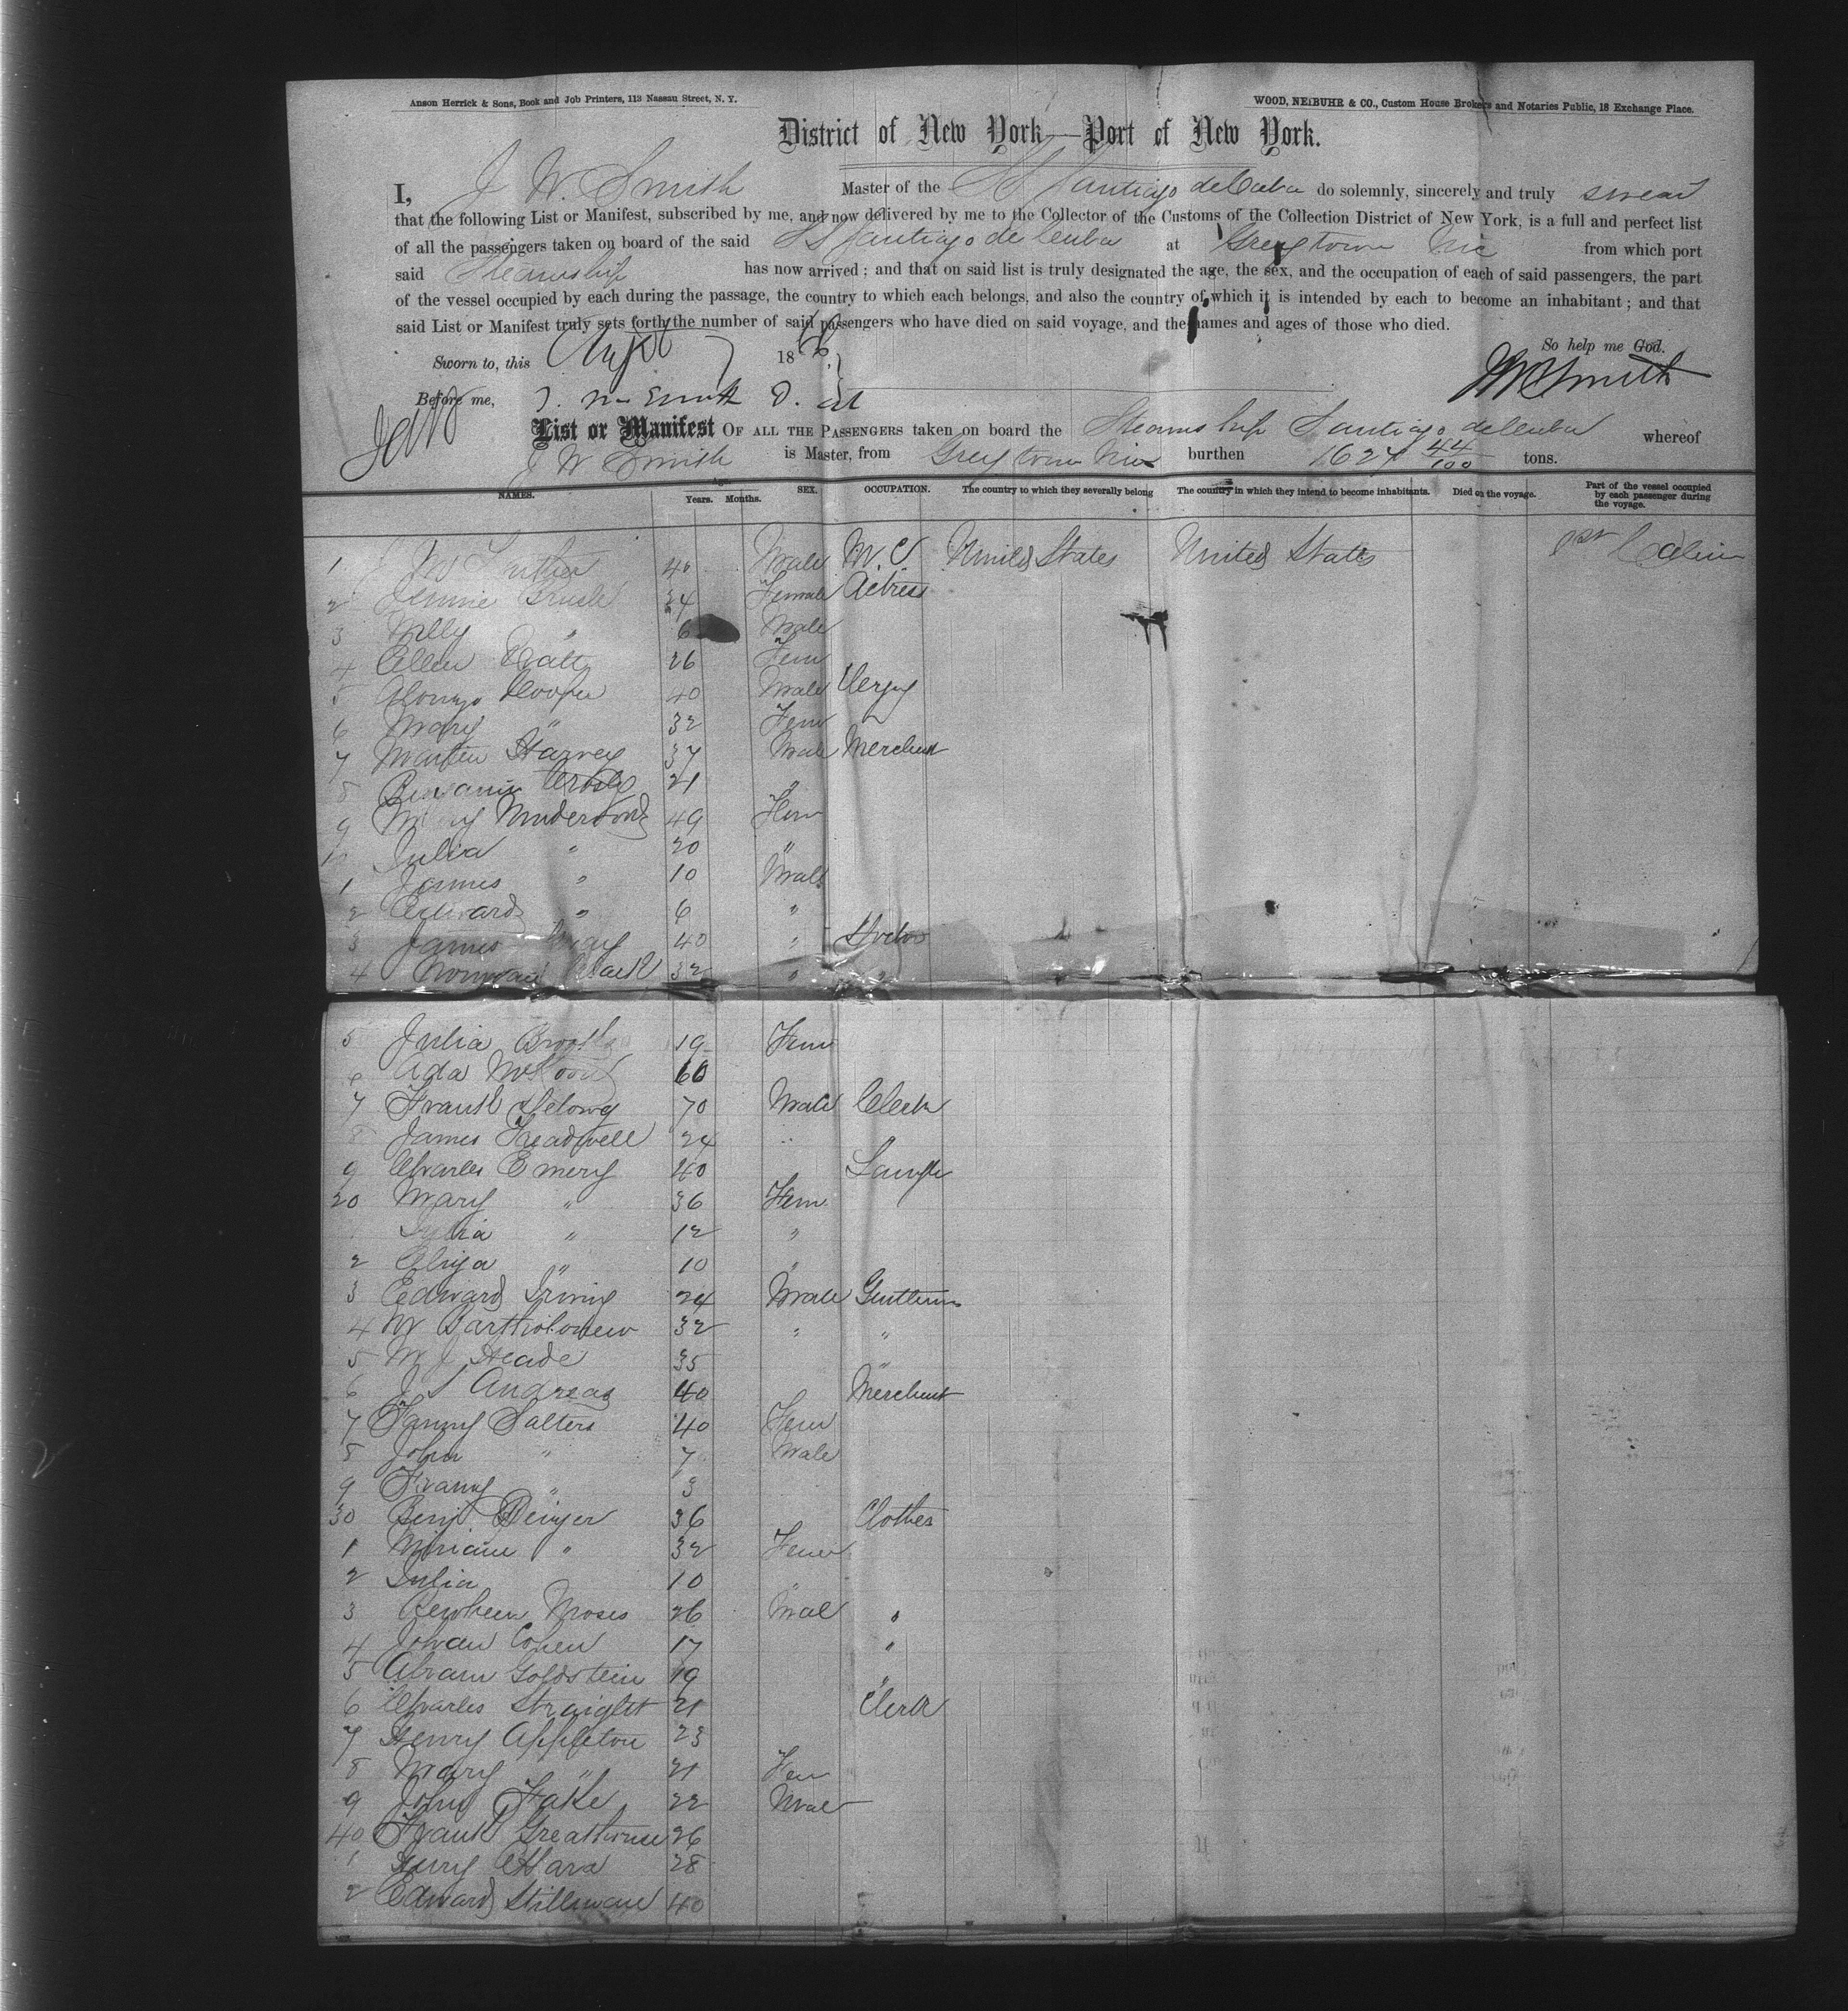 Anson Herrick & Sons, Book and Job Printers, 113 Nassau Street, N. Y.
WOOD, NEIBUHR & CO., Custom House Brokers and Notaries Public, 18 Exchange Place.
District of New York—Port of New York.
I, J W Smith Master of the SS Santiago de Cuba do solemnly, sincerely and truly swear
that the following List or Manifest, subscribed by me, and now delivered by me to the Collector of the Customs of the Collection District of New York, is a full and perfect list
of all the passengers taken on board of the said SS Santiago de Cuba at Greytown Nic from which port
said Steamship has now arrived; and that on said list is truly designated the age, the sex, and the occupation of each of said passengers, the part
of the vessel occupied by each during the passage, the country to which each belongs, and also the country of which it is intended by each to become an inhabitant; and that
said List or Manifest truly sets forth the number of said passengers who have died on said voyage, and the names and ages of those who died.
So help me God.
Sworn to, this 18
JW Smith
Before me,
List or Manifest OF ALL THE PASSENGERS taken on board the Steamship Santiago de Cuba whereof
J W Smith is Master, from Greytown Nic burthen 1627 44/100 tons.
NAMES. Age. Years. Months. SEX. OCCUPATION. The country to which they severally belong The country in which they intend to become inhabitants. Died on the voyage. Part of the vessel occupied by each passenger during the voyage.
1 Male M.C United States United States 1st Cabin
2 Jennie 34 Female Actress
3 " 6 Male
4 Ellen 26 Fem
5 Alonzo Hooper 40 Male Clergy
6 Mary " 32 Fem
7 Martin Harvey 37 Male Merchant
8 Benjamin 21 "
9 49 Fem
10 Julia " 20 "
1 James " 10 Male
2 Edward " 6 "
3 James 40 " Doctor
4 32 " "
5 Julia 19 Fem
6 Ada 60
7 Frank Delong 70 Male Clerk
8 James Treadwell 24 "
9 Charles Emery 40
20 Mary " 36 Fem
" 12 "
2 Eliza " 10 "
3 Edward Irving 24 Male Gentleman
4 W Bartholomew 32 " "
5 M J Heade 35 "
6 J S Andreas 40 Merchant
7 Fanny Salters 40 Fem
8 John " 7 Male
9 Franny " 3
30 Benj 36 Clothier
1 " 32 Fem
2 Julia 10 "
3 Reuben Moses 26 Male "
4 Cohen 17 "
5 Abram Goldstein 19 "
6 Charles Straight 21 Clerk
7 Henry Appleton 23
8 Mary " 21 Fem
9 John Fake 22 Male
40 Frank Greathouse 26
1 28
2 Edward Stillman 40